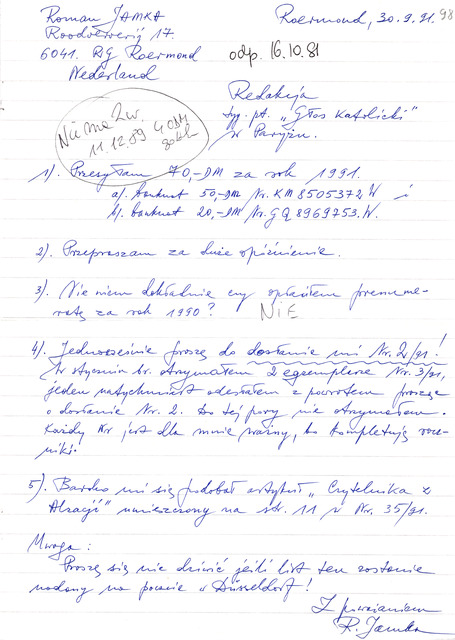 Roman JAMKA
Roermond, 30.9.91.
98
Roodververij 17.
6041. RG Roermond
odp. 16.10.81
Nederland
Redakcja
tyg. pt. „Głos Katolicki"
w Paryżu.
Nie ma 2w.
11.12.89 40DM
1). Przesyłam 70,-DM za rok 1991.
a). banknot 50,-DM Nr. KM8505372W i
b). banknot 20,-DM Nr. GQ8969753.W.
2). Przepraszam za duże opóźnienie.
3). Nie wiem dokładnie czy opłaciłem prenume-
ratę za rok 1990?
NIE
4). Jednocześnie proszę do dosłanie mi Nr. 2/91!
W styczniu br. otrzymałem 2 egzemplarze Nr. 3/91,
jeden natychmiast odesłałem z powrotem prosząc
o dosłanie Nr. 2. Do tej pory nie otrzymałem.
Każdy Nr jest dla mnie ważny, bo kompletuję rocz-
niki.
5). Bardzo mi się podobał artykuł „Czytelnika z
Alzacji" umieszczony na str. 11 w Nr. 35/91.
Uwaga:
Proszę się nie dziwić jeśli list ten zostanie
nadany na poczcie w Düsseldorf!
Z poważaniem
R. Jamka